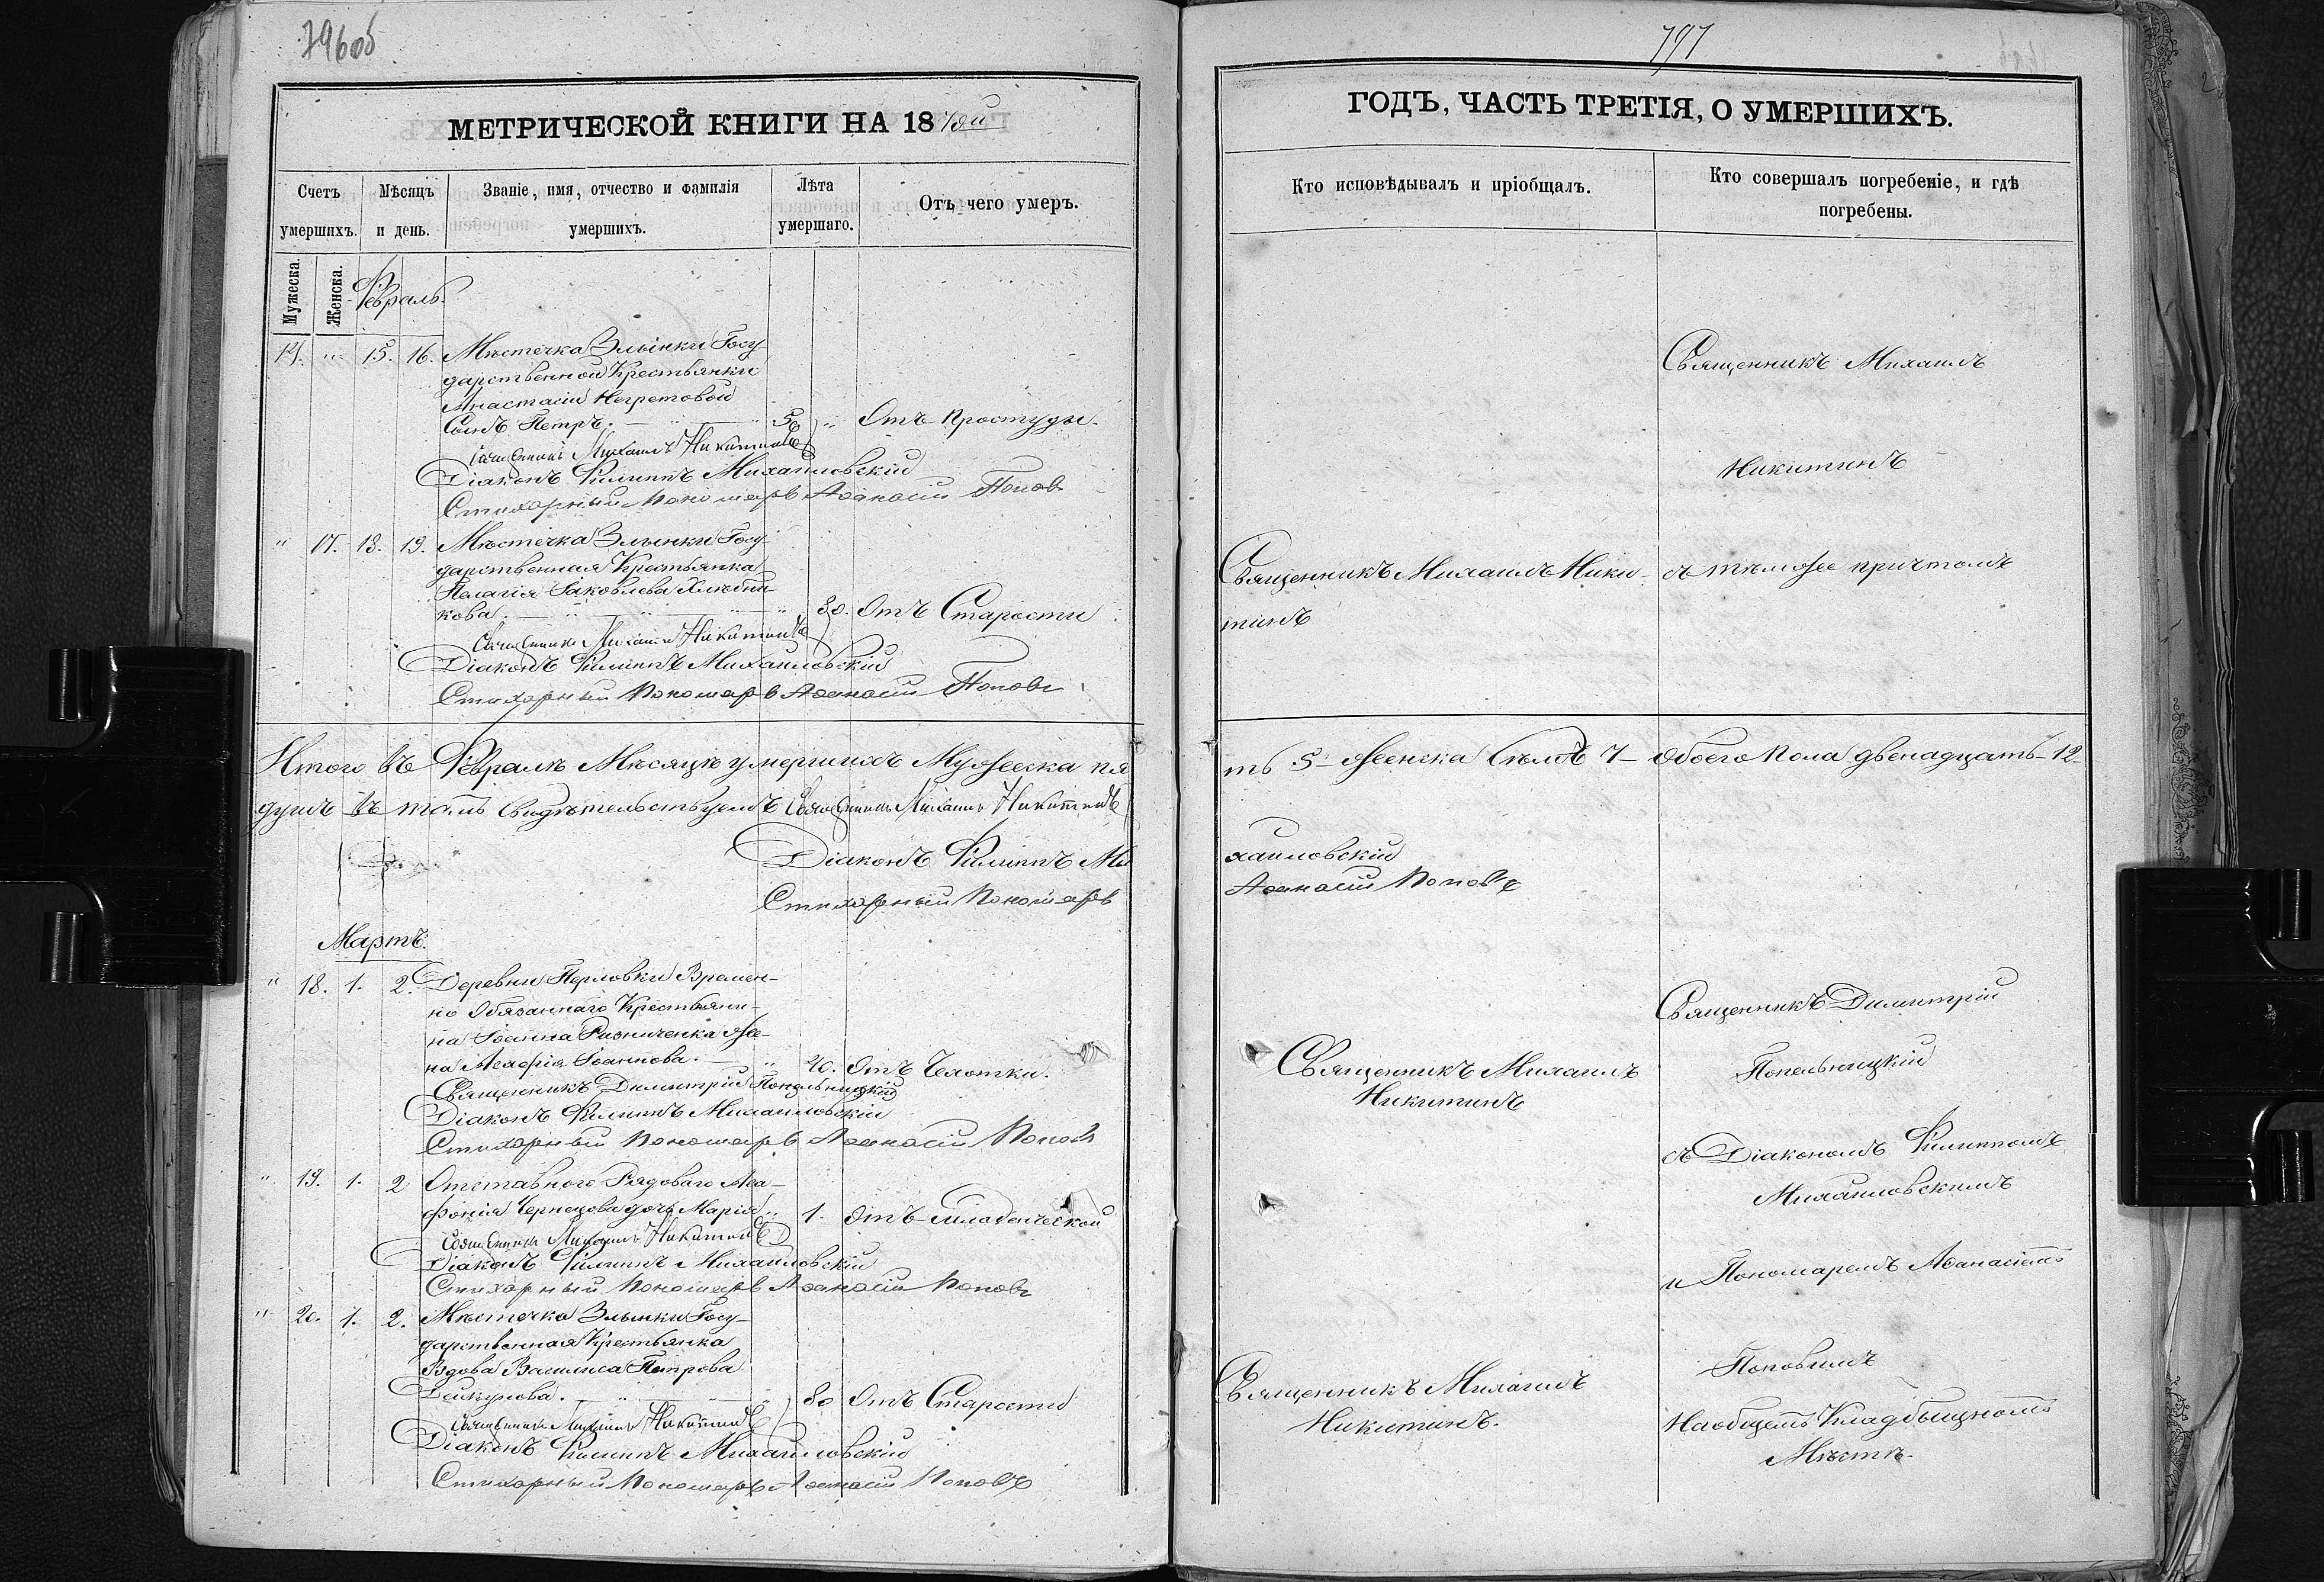 796об
МЕТРИЧЕСКОЙ КНИГИ НА 187
Счетъ умершихъ.
Мѣсяцъ и день.
Званіе, имя, отчество и фамилія умершихъ.
Лѣта умершаго.
Отъ чего умеръ.
Мужеска.
Женска.
Февраль.
14. " 15. 16. Мѣстечка Злынки Госу
дарственной Крестьянки
Анастасіи Негретовой
Сынъ Петръ. — " — 5 " Отъ Простуды.
Священникъ Михаилъ Никитинъ
Діаконъ Филиппъ Михаиловскій
Стихарный Пономарь Аѳанасій Попов
" 17. 18. 19. Мѣстечка Злынки Госу-
дарственная Крестьянка
Пелагія Іаковлева Хлѣбни
кова. — " — " 80. Отъ Старости
Священникъ Михаилъ Никитинъ
Діаконъ Филиппъ Михаиловскій
Стихарный Пономарь Аѳанасій Поповъ
Итого въ Февралѣ Мѣсяцѣ умершихъ Мужеска пя
душъ въ томъ Свидѣтельствуемъ Священникъ Михаилъ Никитинъ
Діаконъ Филиппъ Ми
Стихарный Пономарь
Мартъ.
" 18. 1. 2. Деревни Перловки Времен-
но Обязаннаго Крестьяни-
на Іоанна Ризниченка же-
на Агафія Іоаннова. — " 40. Отъ Чахотки.
Священникъ Димитрій Попельницкій
Діаконъ Филиппъ Михаиловскій
Стихарный Пономарь Аѳанасій Поповъ
" 19. 1. 2 Отставного Рядоваго Ага-
фонія Чернецова дочь Марія " 1. Отъ младенческой
Священникъ Михаилъ Никитинъ
Діаконъ Филиппъ Михаиловскій
Стихарный Пономарь Аѳанасій Поповъ
" 20. 1. 2. Мѣстечка Злынки Госу-
дарственная Крестьянка
Вдова Василиса Петрова
— " — " 80 Отъ Старости
Священникъ Михаилъ Никитинъ
Діаконъ Филиппъ Михаиловскій
Стихарный Пономарь Аѳанасій Поповъ
797
ГОДЪ, ЧАСТЬ ТРЕТІЯ, О УМЕРШИХЪ.
Кто исповѣдывалъ и пріобщалъ.
Кто совершалъ погребеніе, и гдѣ погребены.
Священникъ Михаилъ
Никитинъ
Священникъ Михаилъ Ники- съ тѣмже причтомъ
тинъ
ть 5 – Женска Семь 7 – Обоего Пола двенадцать – 12
хаиловскій
Аѳанасій Поповъ
Священникъ Димитрій
Священникъ Михаилъ Попельницкій
Никитинъ
съ Діакономъ Филиппомъ
Михаиловскимъ
и Пономаремъ Аѳанасіемъ
Поповымъ
Священникъ Михаилъ
Никитинъ. На общемъ Кладбищномъ
Мѣстѣ.